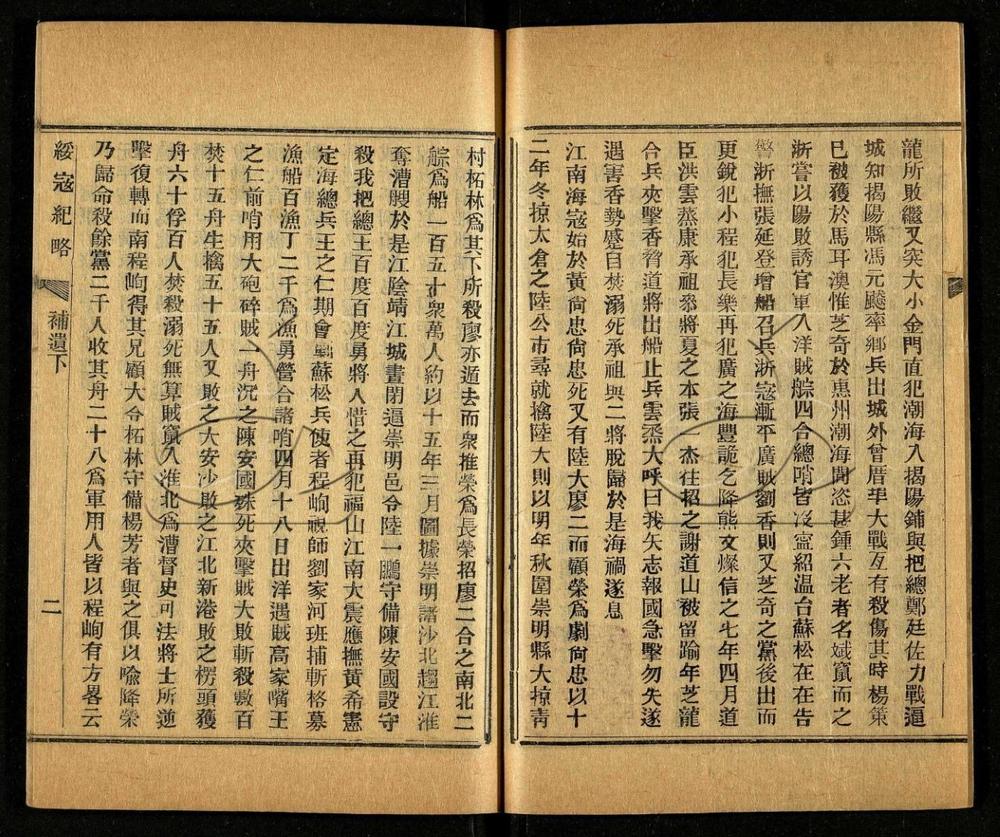 龍所敗繼又突大小金門直犯潮海入揭陽鋪與把總鄭廷佐力戰逼
城知揭陽縣馮元飈率鄉兵出城外曾厝洋大戰互有殺傷其時楊策
已被獲於馬耳澳惟芝奇於惠州潮海間恣甚鍾六老者名斌竄而之
浙嘗以陽敗誘官軍入洋賊䑸四合總哨皆沒寧紹温台蘇松在在告
警浙撫張延登增船召兵浙寇漸平廣賊劉香則又芝奇之黨後出而
更銳犯小程犯長樂再犯廣之海豐詭乞降熊文燦信之七年四月道
臣洪雲蒸康承祖叅將夏之本張一杰往招之謝道山被留踰年芝龍
合兵夾擊香脅道將出船止兵雲烝大呼曰我矢志報國急擊勿失遂
遇害香勢蹙自焚溺死承祖與二將脫歸於是海禍遂息
江南海寇始於黃尙忠尙忠死又有陸大廖二而顧榮爲劇尙忠以十
二年冬掠太倉之陸公市尋就擒陸大則以明年秋圍崇明縣大掠靑
村柘林爲其下所殺廖亦遁去而衆推榮爲長榮招廖二合之南北二
䑸爲船一百五十衆萬人約以十五年三月圖據崇明諸沙北趨江淮
奪漕艘於是江陰靖江城晝閉逼崇明邑令陸一鵬守備陳安國設守
殺我把總王百度百度勇將人惜之再犯福山江南大震應撫黃希憲
定海總兵王之仁期會勦蘇松兵使者程峋視師劉家河班捕斬格募
漁船百漁丁二千爲漁勇營合諸哨四月十八日出洋遇賊高家嘴王
之仁前哨用大砲碎賊一舟沉之陳安國殊死夾擊賊大敗斬殺數百
焚十五舟生擒五十五人又敗之大安沙敗之江北新港敗之楞頭獲
舟六十俘百人焚殺溺死無算賊竄入淮北爲漕督史可法將士所逆
擊復轉而南程峋得其兄顧大令柘林守備楊芳者與之俱以喻降榮
乃歸命殺餘黨二千人收其舟二十八爲軍用人皆以程峋有方畧云
綏寇紀略 補遺下 二